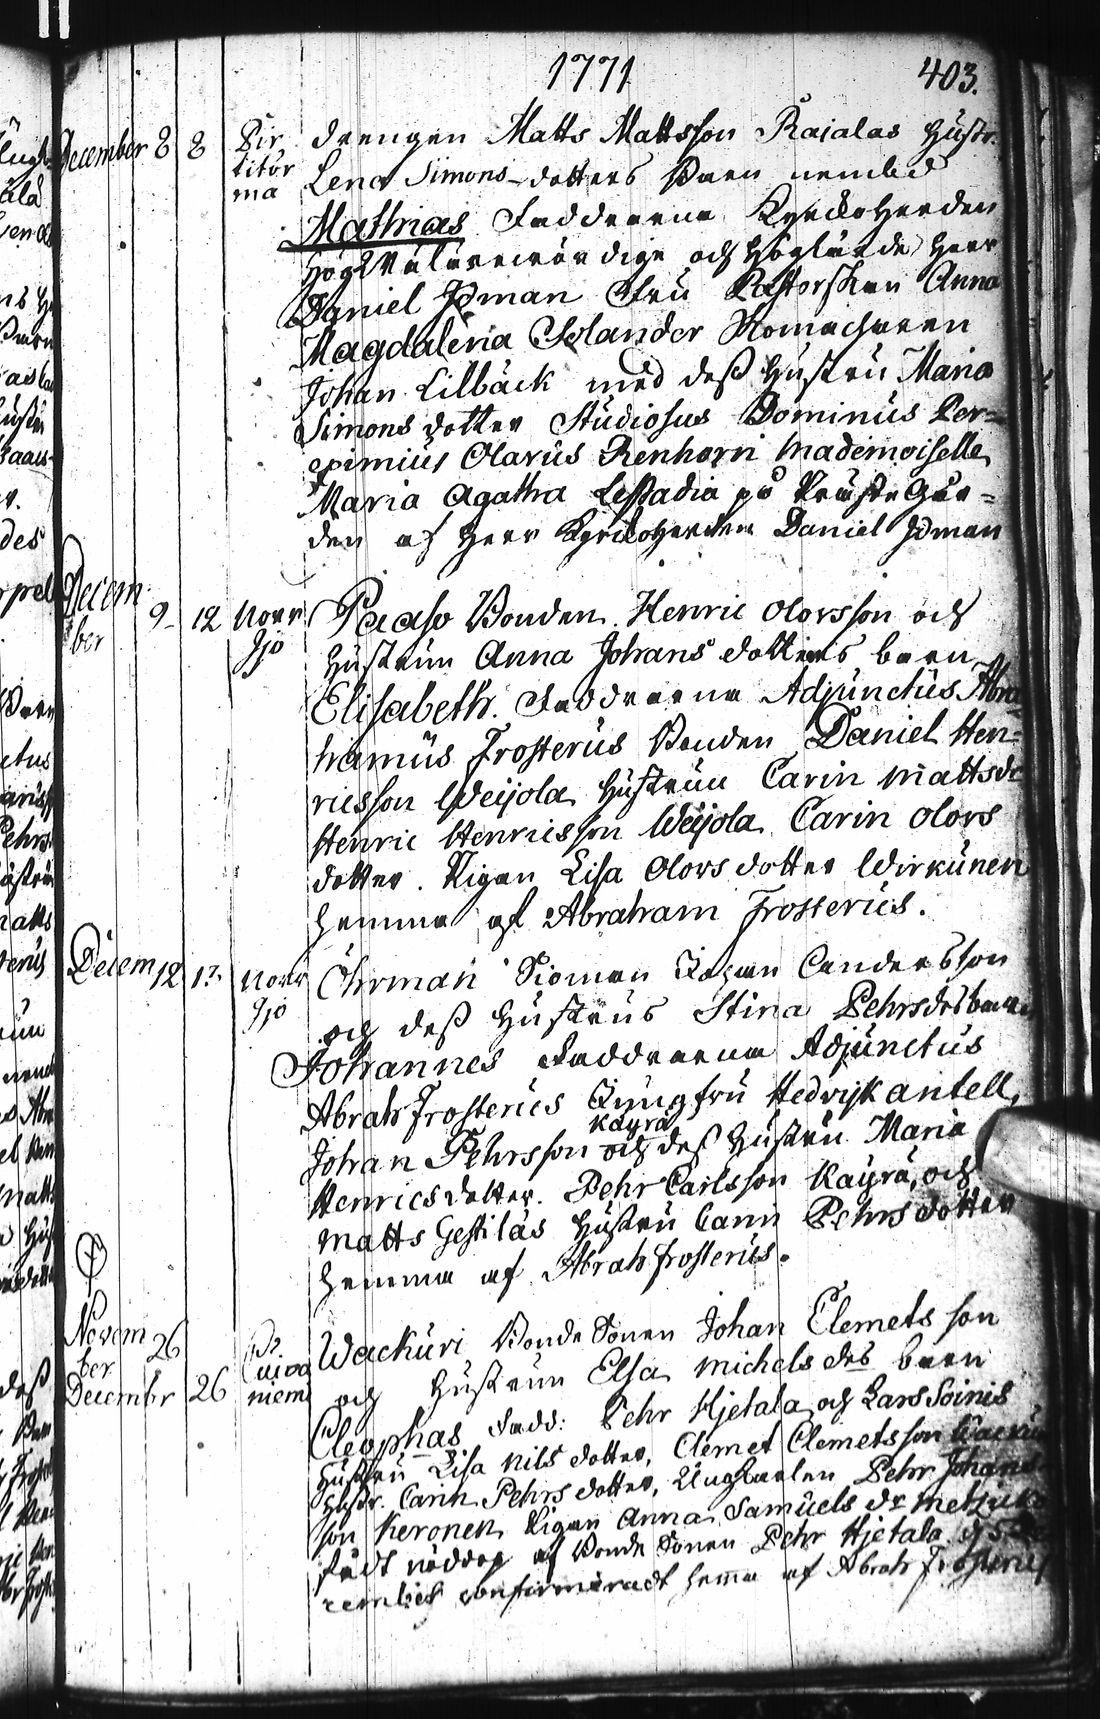 1771
403.
December 8 8 Pir
titör
ma
drengen Matts Mattsson Raialas Hustr.
Lena Simons-dotters Barn nembd
Mathias Faddrarna Kyrckoherden
HögWälärewördige och Höglärde Herr
Daniel Idman Fru Pastorskan Anna
Magdalena Solander
Johan Lilbäck med dess Hustru Maria
Simons dotter Studiosus Dominus Per=
eximius Olavus Renhorn Mademoiselle
Maria Agatha Lestadia på Präste Går=
den af Herr Kyrckoherden Daniel Idman
Decem
ber 9 12 Norr
Sjö
Paaso Bonden Henric Olovsson och
Hustrun Anna Johans dotters barn
Elisabeth. Faddrarna Adjunctus Abra
hamus Frosterus Bonden Daniel Hen=
ricsson Weijola Hustrun Carin Mattsd
Henric Henricsson Weijola Carin Olovs
dotter. Pigan Lisa Olovs dotter Wirkunen
hemma af Abraham Frosterus.
Decem 12 Norr
Sjö
Öhrman
och dess Hustrus Stina Pehrsdrs barn
Johannes Faddrarna Adjunctus
Abrah Frosterus Jungfru Hedvig Antell,
Kayra
Johan Pehrsson och dess Hustru Maria
Henricsdotter. Pehr Carlsson Kayra, och
Matts Gestilas Hustru Carin Pehrsdotter
hemma af Abrah Frosterus.
Novem 26
ber
Decembr 26
niemi
Wackuri Bonde Sonen Johan Clemets son
och Hustrun Elsa Michels drs barn
Cleophas Fadd: Pehr Hjetala och Lars Soinis
Hustru Lisa Nils dotter, Clemet Clemetsson
Hustr. Carin Pehrs dotter, Ungkarlen Pehr Johans
son Keronen Pigan Anna Samuels dr
födt nöddop af Bonde Sonen Pehr Hjetala
confirmeradt hema af Abrah Frosterus